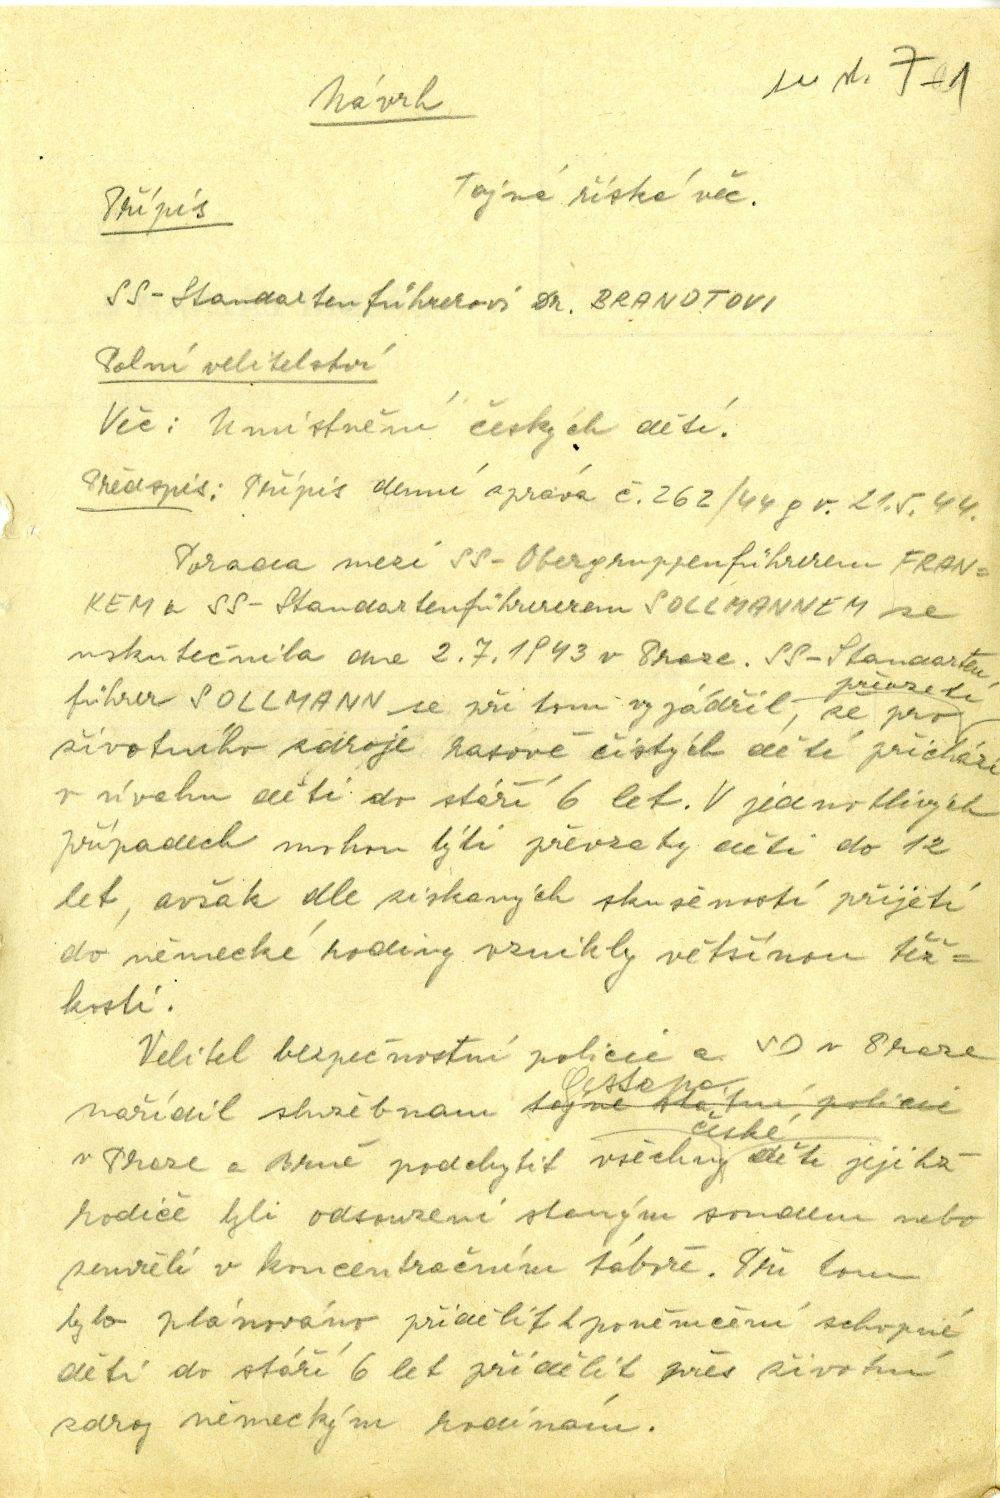 7-1
Návrh
Tajná říská věc.
Přípis
SS-Standartenführerovi Dr. BRANDTOVI
Polní velitelství
Věc: Umístnění českých dětí.
Předspis: Přípis denní zpráva č. 262/44 g v. 21.5.44.
Porada mezi SS-Obergruppenführerem FRAN=
KEM a SS-Standartenführererem SOLLMANNEM se
uskutečnila dne 2.7.1943 v Praze. SS-Standarten-
převzetí
führer SOLLMANN se při tom vyjádřil, že pro
životního zdroje rasově čistých dětí přichází
v úvahu děti do stáří 6 let. V jednotlivých
případech mohou býti převzaty děti do 12
let, avšak dle získaných skušeností přijetí
do německé rodiny vznikly většinou těž=
kosti.
Velitel bezpečnostní policie a SD v Praze
Gestapa
nařídil služebnam tajné státní policie
české
v Praze a Brně podchytit všechny děti jejichž
rodiče byli odsouzeni stanným soudem nebo
zemřeli v koncentračním táboře. Při tom
bylo plánováno přidělit poněmčení schopné
děti do stáří 6 let přidělit přes životní
zdroj německým rodinám.